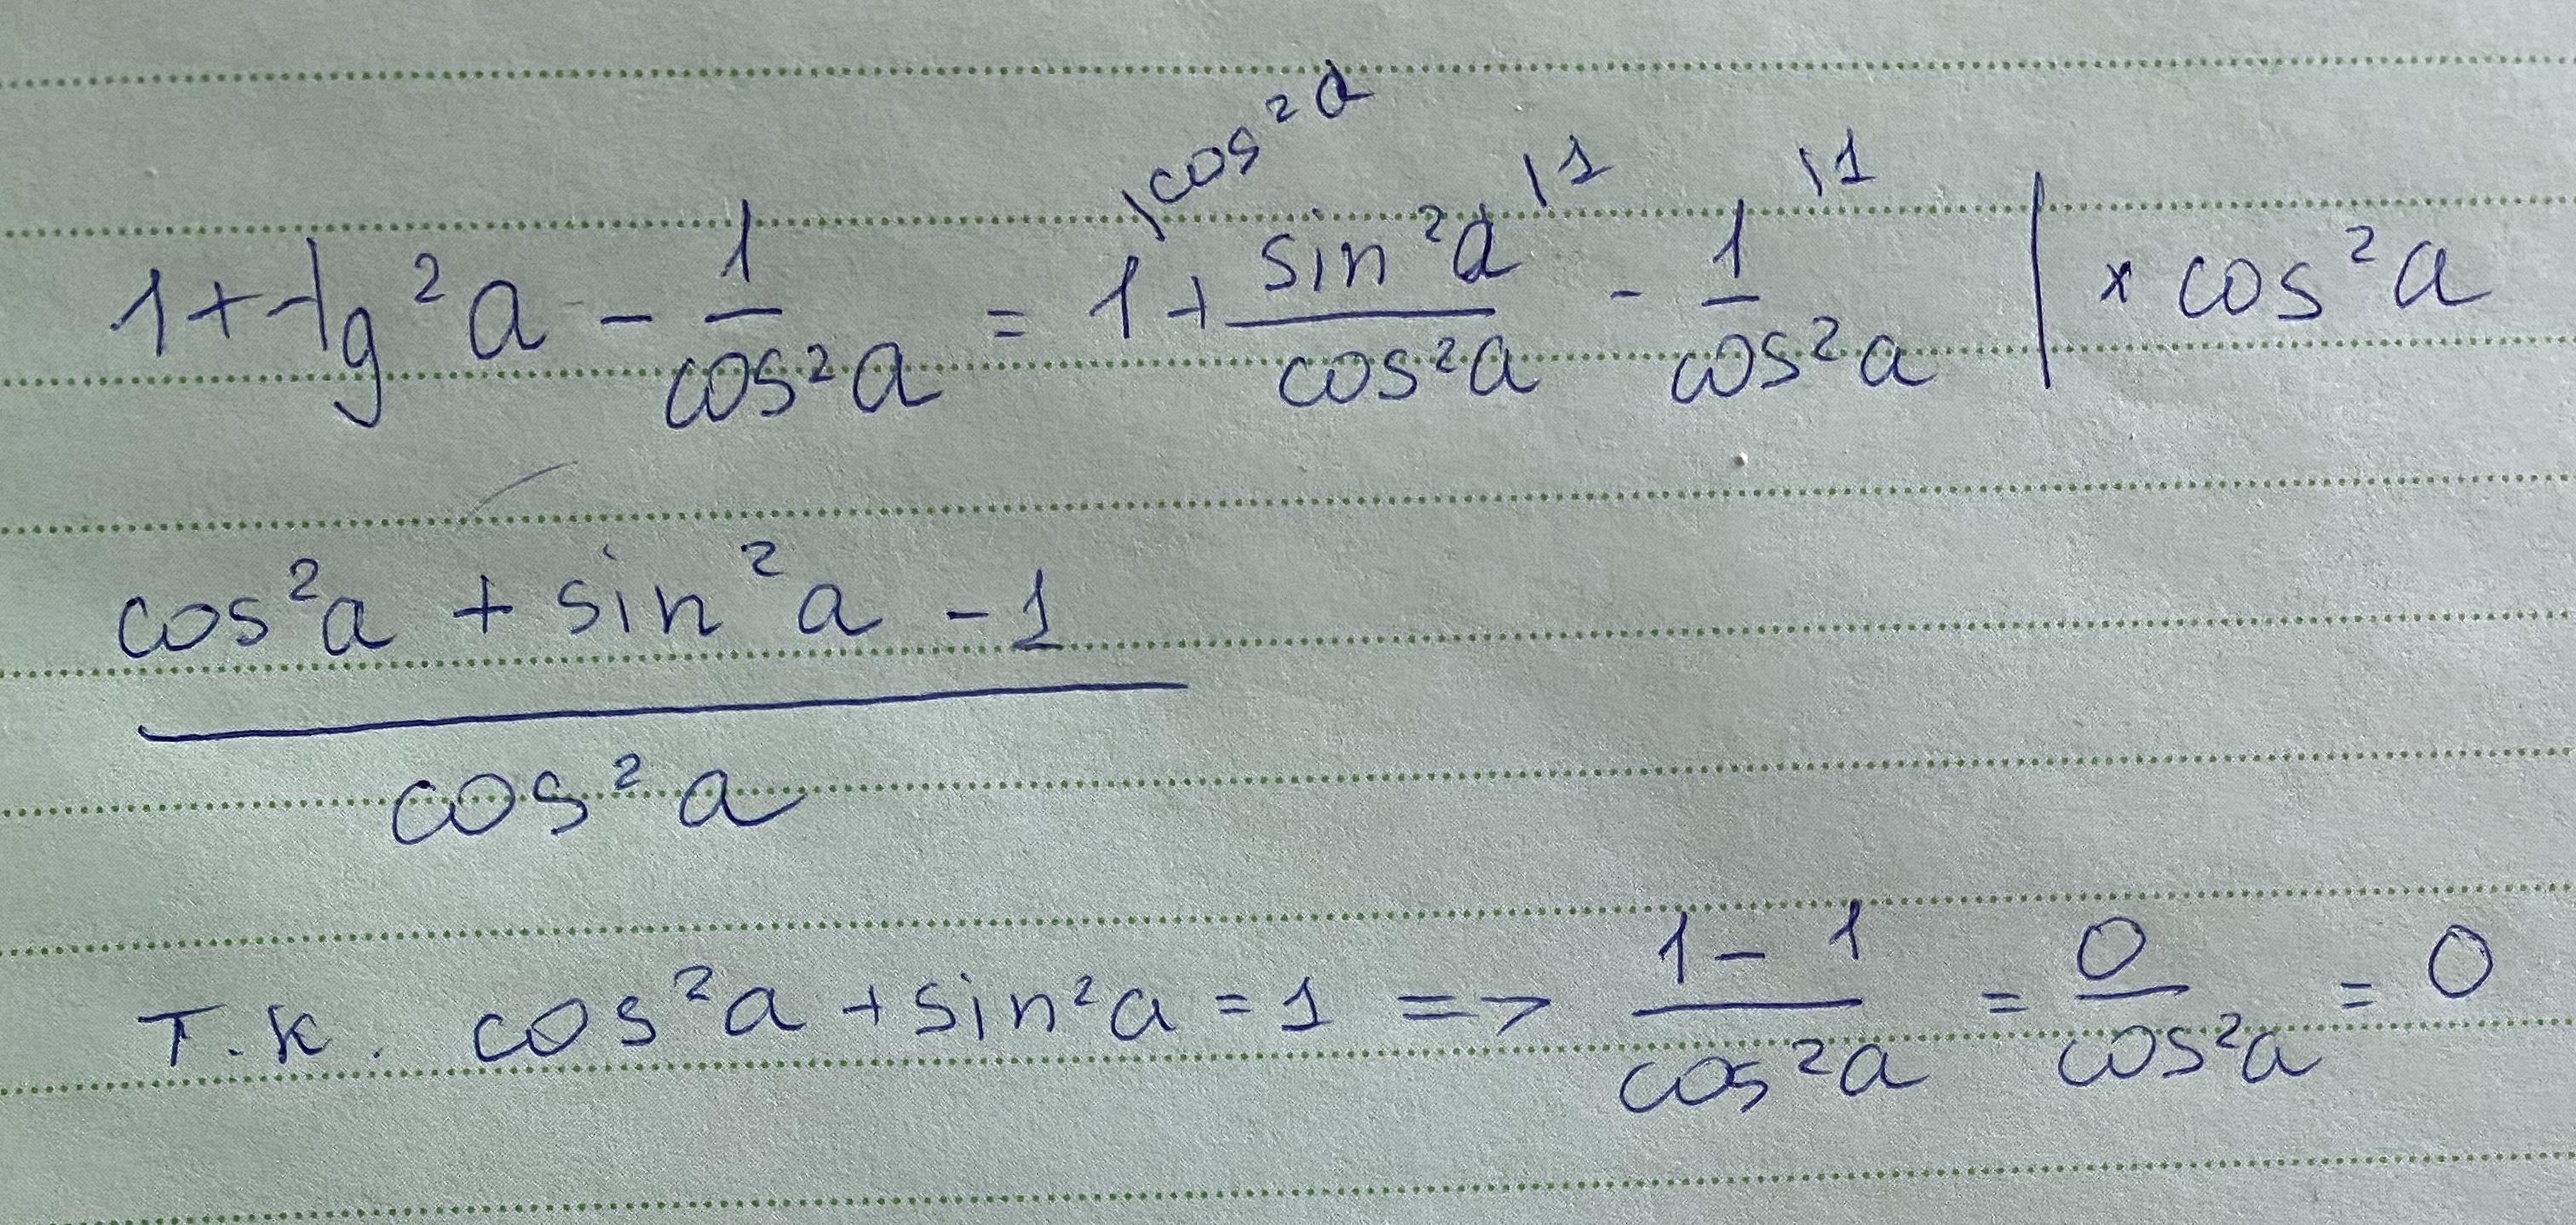 1 + tg²a - 1/cos²a = 1\cos²a + sin²a/cos²a \1 - 1/cos²a \1 | × cos²a
(cos²a + sin²a - 1)/cos²a
т.к. cos²a + sin²a = 1 => (1 - 1)/cos²a = 0/cos²a = 0